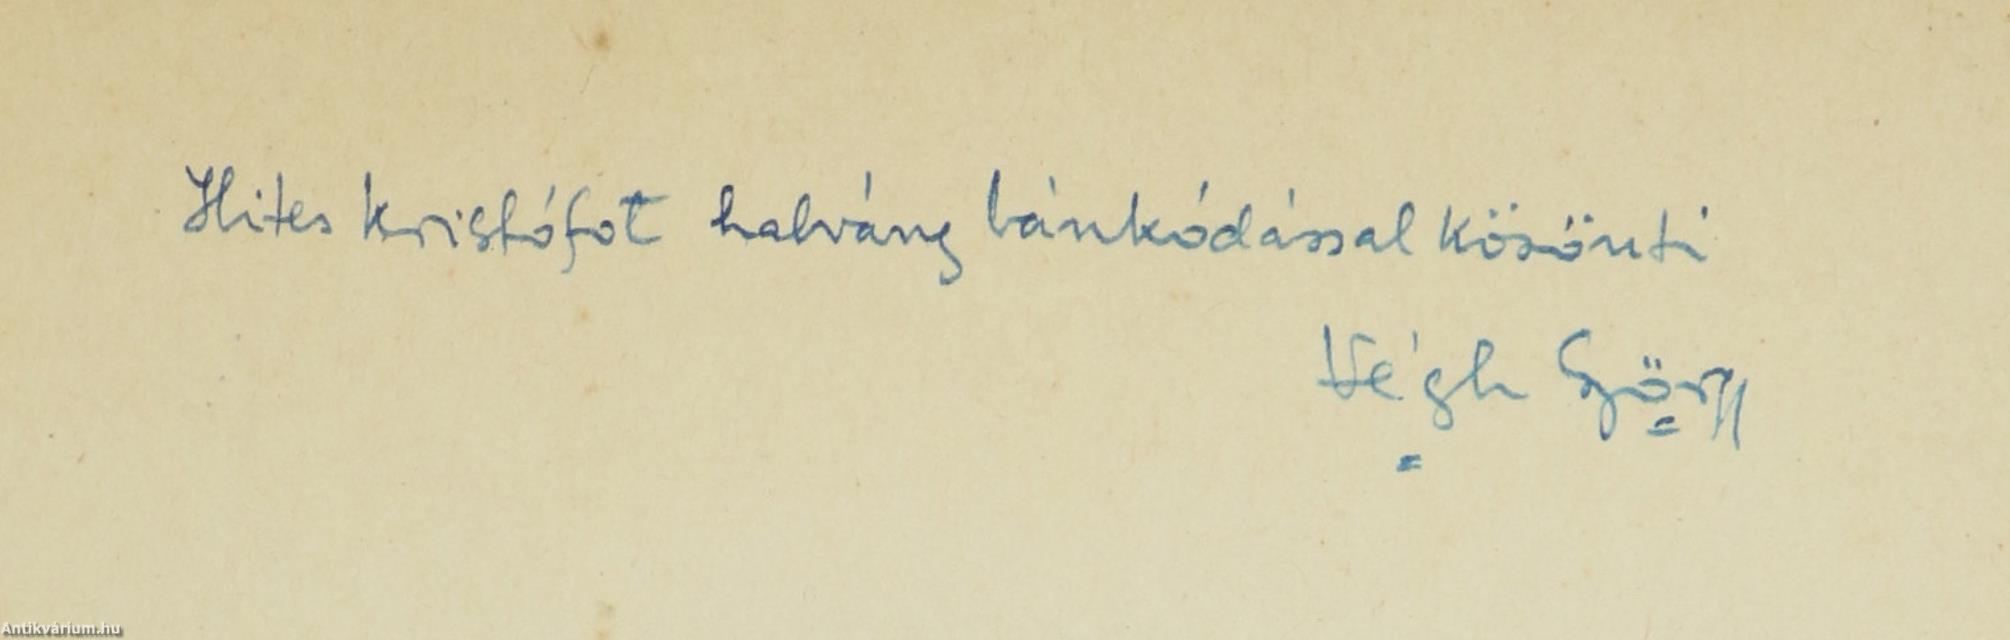 Hites Kristófot halvány bánkódással köszönti
Végh György
Antikvárium.hu